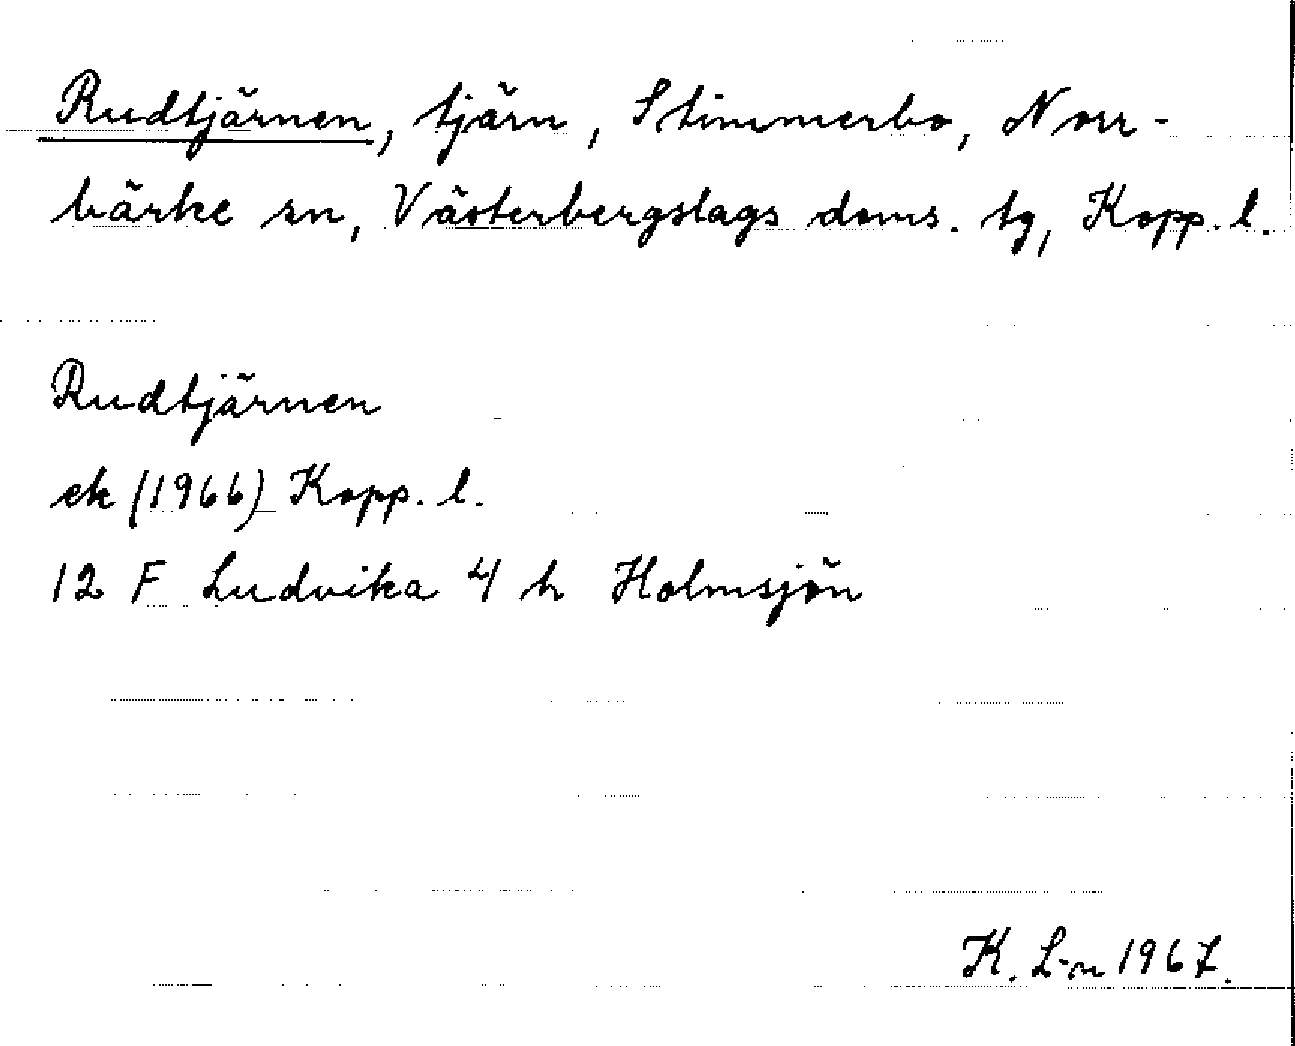 Rudtjärnen, tjärn, Stimmerbo, Norr-
bärke sn, Västerbergslags doms. tg, Kopp. l.
Rudtjärnen
ek (1966) Kopp. l.
12 F Ludvika 4 h Holmsjön
K. L-n 1967.